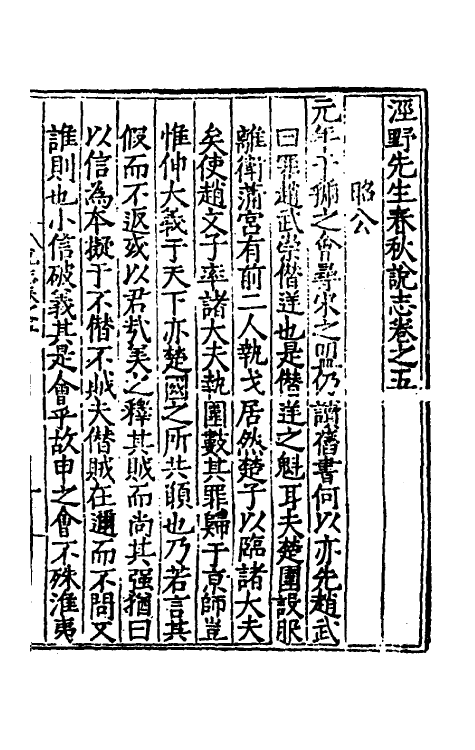 涇野先生春秋說志卷之五
昭公
元年于虢之會尋宋之盟仍讀舊書何以亦先趙武
曰罪趙武崇僣逆也是僣逆之魁耳夫楚圍設服
離衛蒲宮有前二人執戈居然楚子以臨諸大夫
矣使趙文子率諸大夫執圍數其罪歸于京師豈
惟仲大義于天下亦楚國之所共願也乃若言其
假而不返或以君哉美之釋其賊而尚其强猶曰
以信為本擬于不僣不賊夫僣賊在邇而不問又
誰則也小信破義其是會乎故申之會不殊淮夷